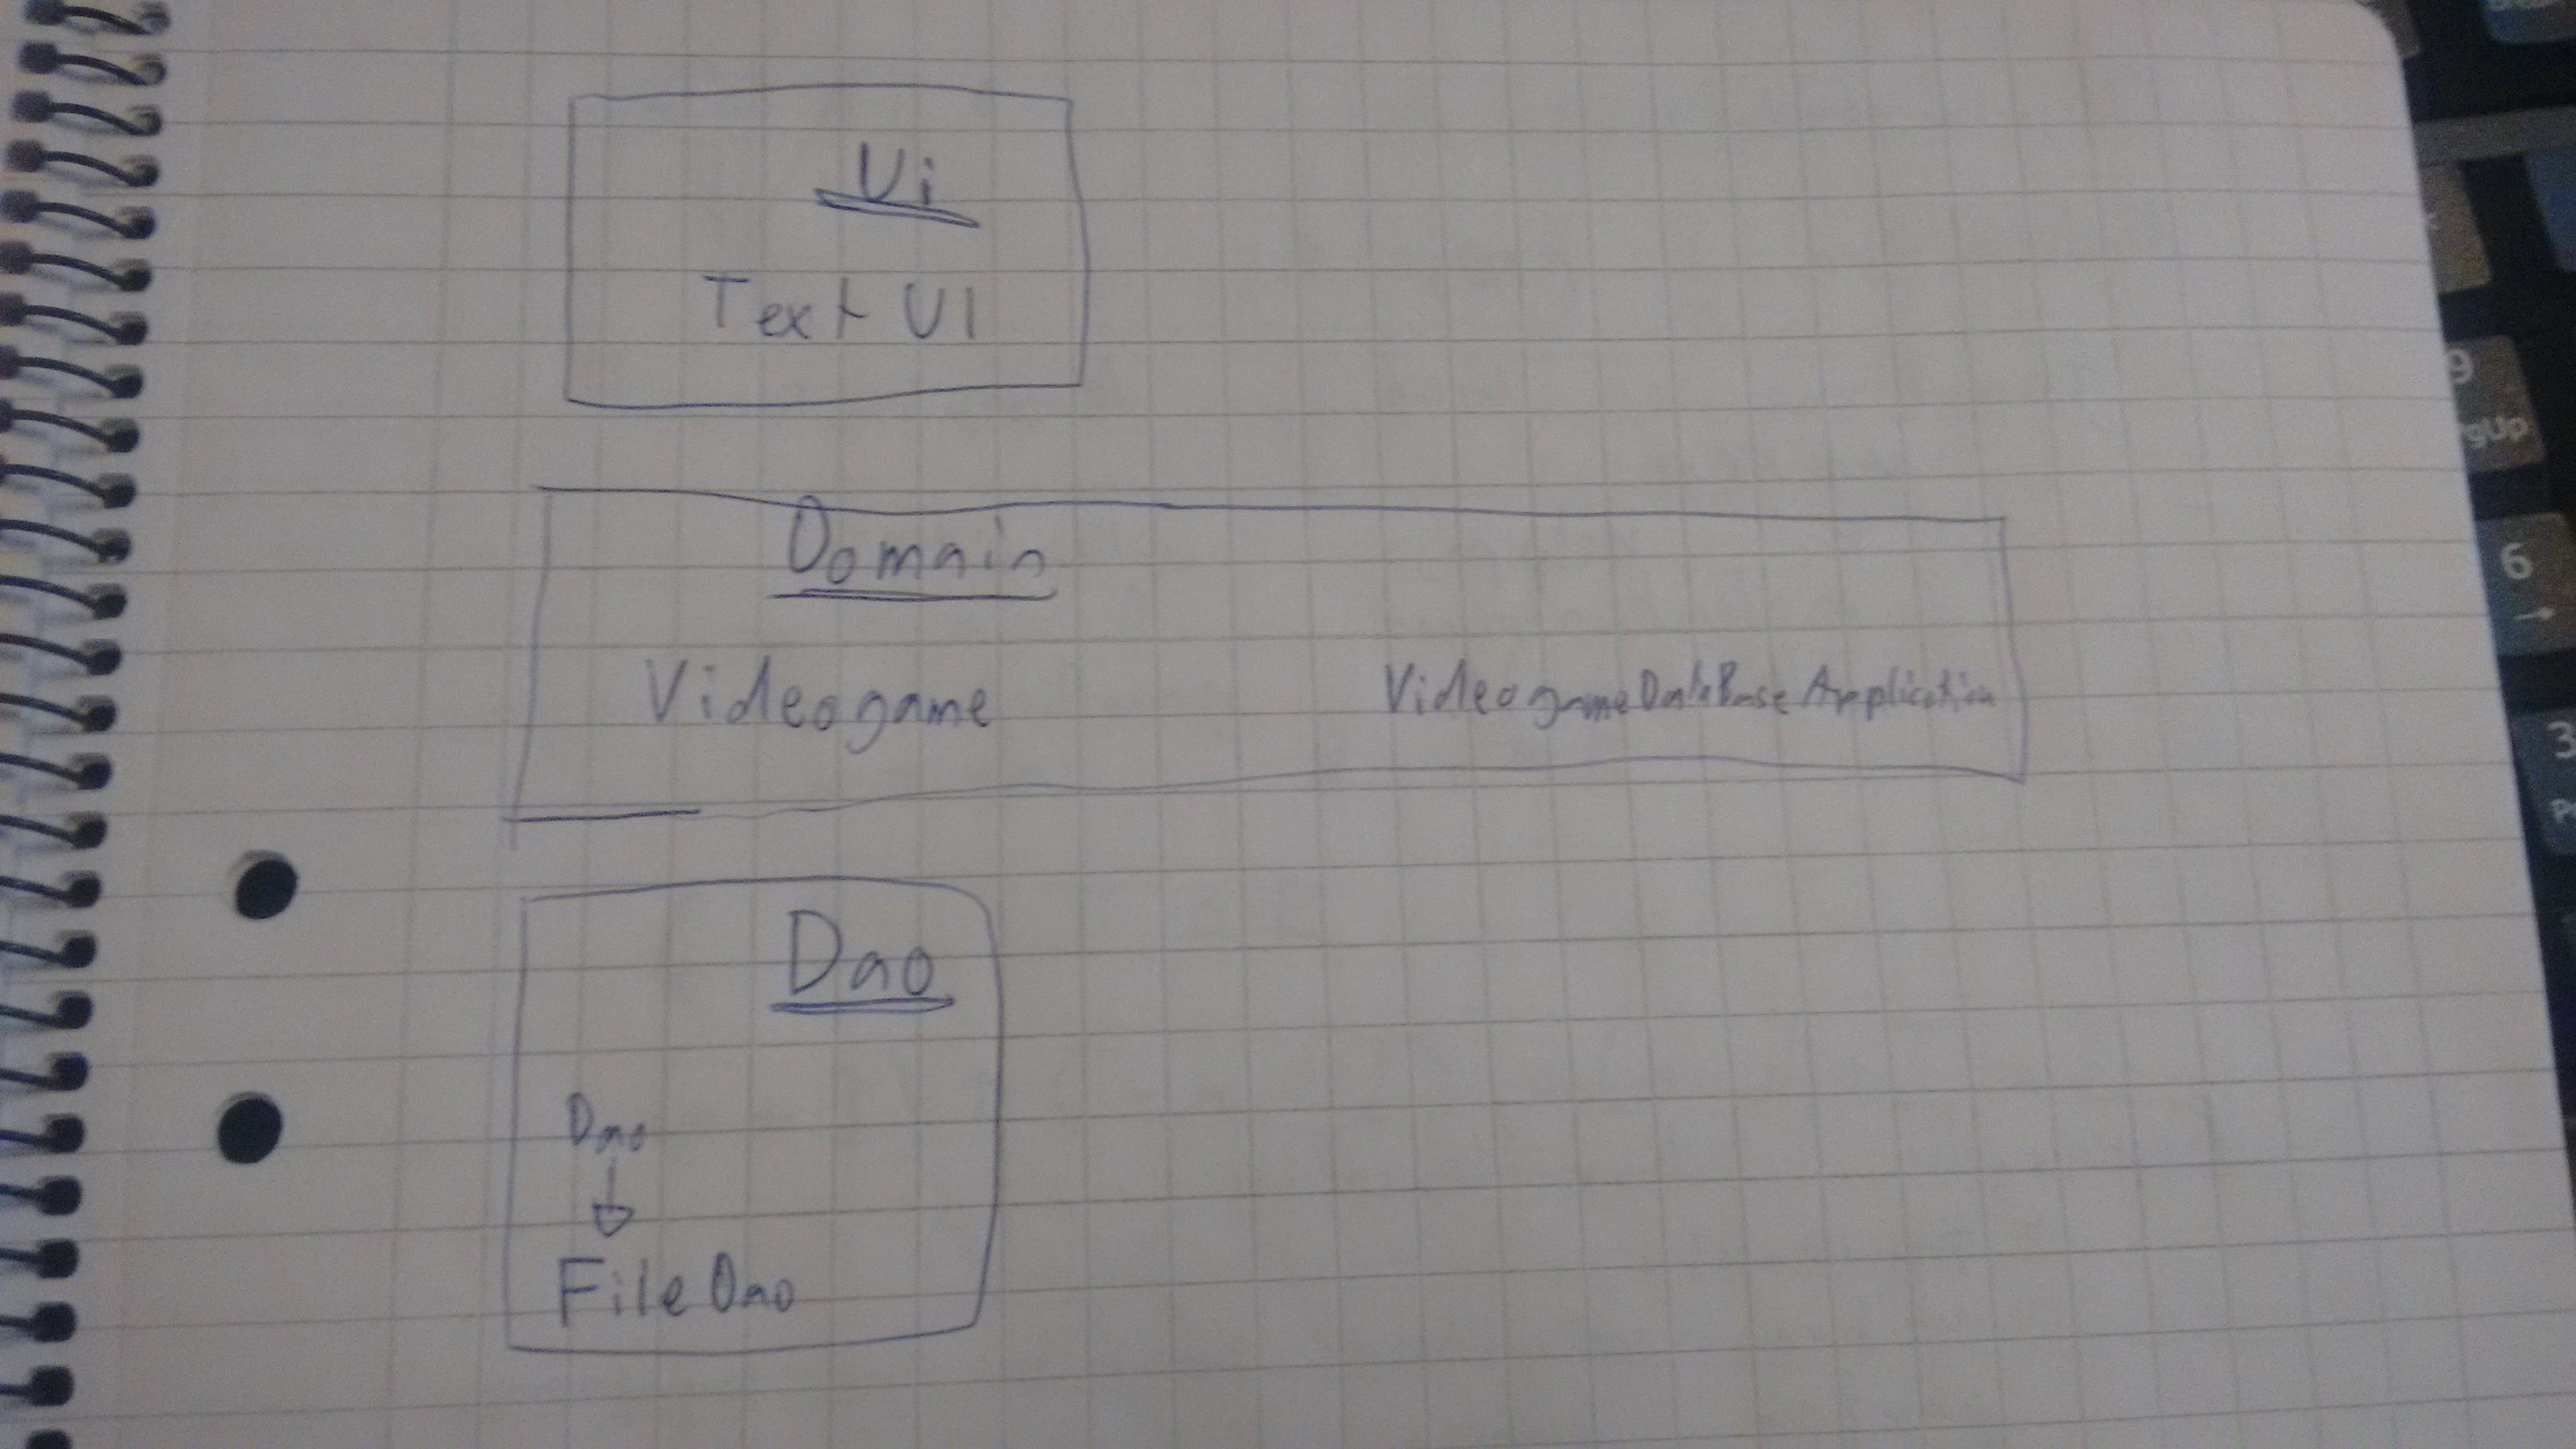 Ui
Text UI
Domain
Videogame VideogameDataBaseApplication
Dao
Dao
FileDao
9
gUp
6
→
3